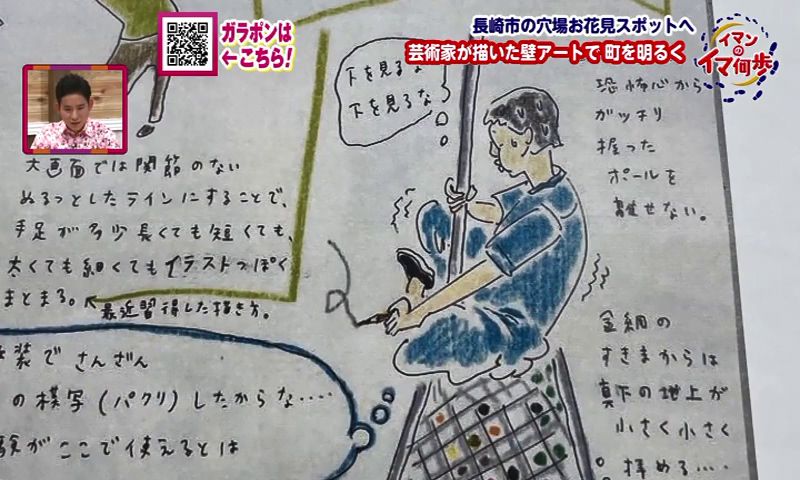 ガラポンは
←こちら!
長崎市の穴場お花見スポットへ
芸術家が描いた壁アートで 町を明るく
イマン
の
イマ何歩
下を見るな
下を見るな
恐怖心から
ガッチリ
握った
ポールを
離せない。
大画面では関節のない
ぬるっとしたラインにすることで、
手足が多少長くても短くても、
太くても細くてもイラストっぽく
まとまる。
最近習得した描き方。
装でさんざん
の模写(パクリ)したからな‥‥
験がここで使えるとは
金網の
すきまからは
真下の地上が
小さく小さく
拝める‥‥